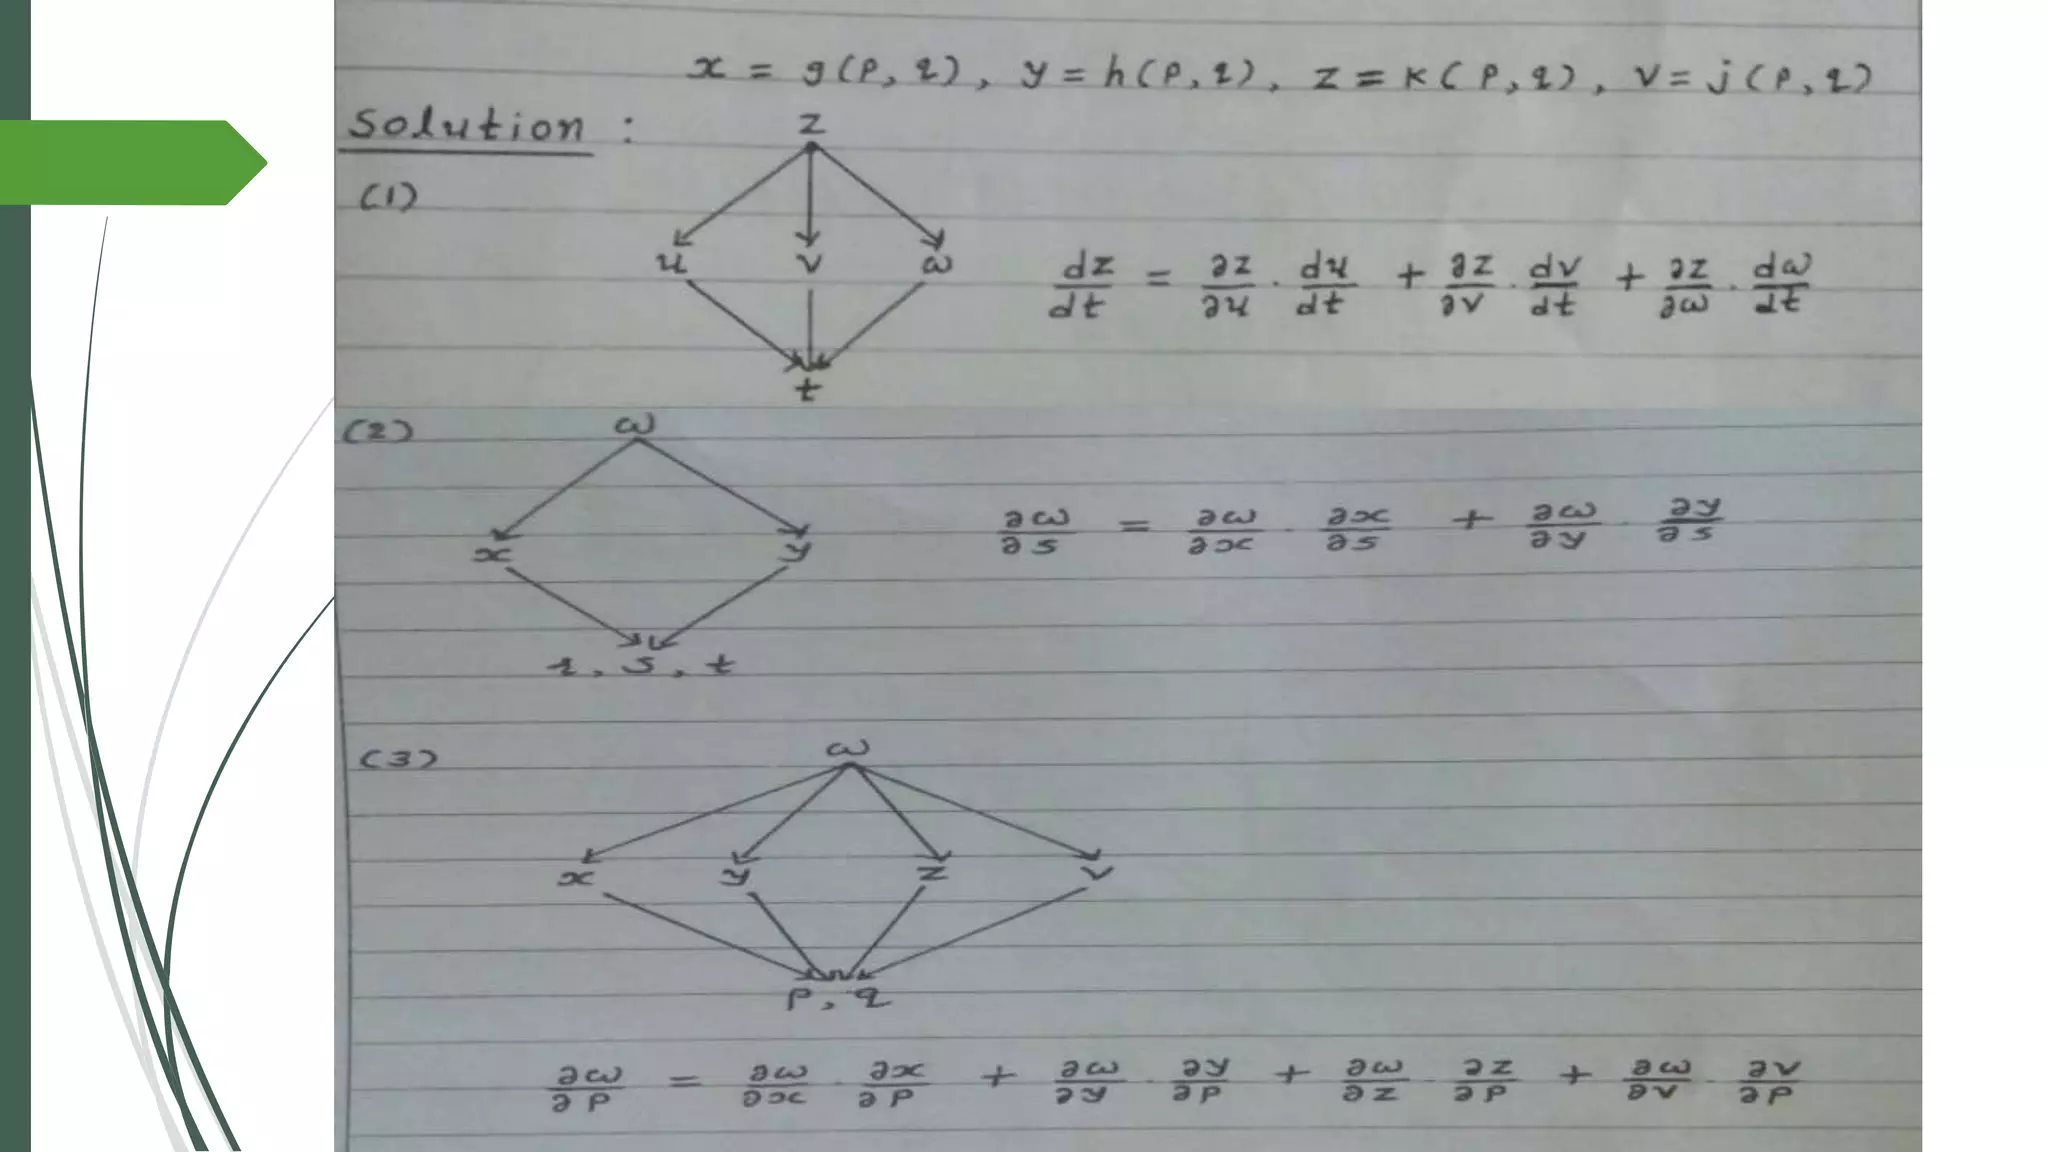 x = g(p, q), y = h(p, q), z = k(p, q), v = j(p, q)
Solution :
(1)
z
u v ω
dz/dt = ∂z/∂u · du/dt + ∂z/∂v · dv/dt + ∂z/∂ω · dω/dt
t
(2)
ω
x y
∂ω/∂s = ∂ω/∂x · ∂x/∂s + ∂ω/∂y · ∂y/∂s
r, s, t
(3)
ω
x y z v
p, q
∂ω/∂p = ∂ω/∂x · ∂x/∂p + ∂ω/∂y · ∂y/∂p + ∂ω/∂z · ∂z/∂p + ∂ω/∂v · ∂v/∂p